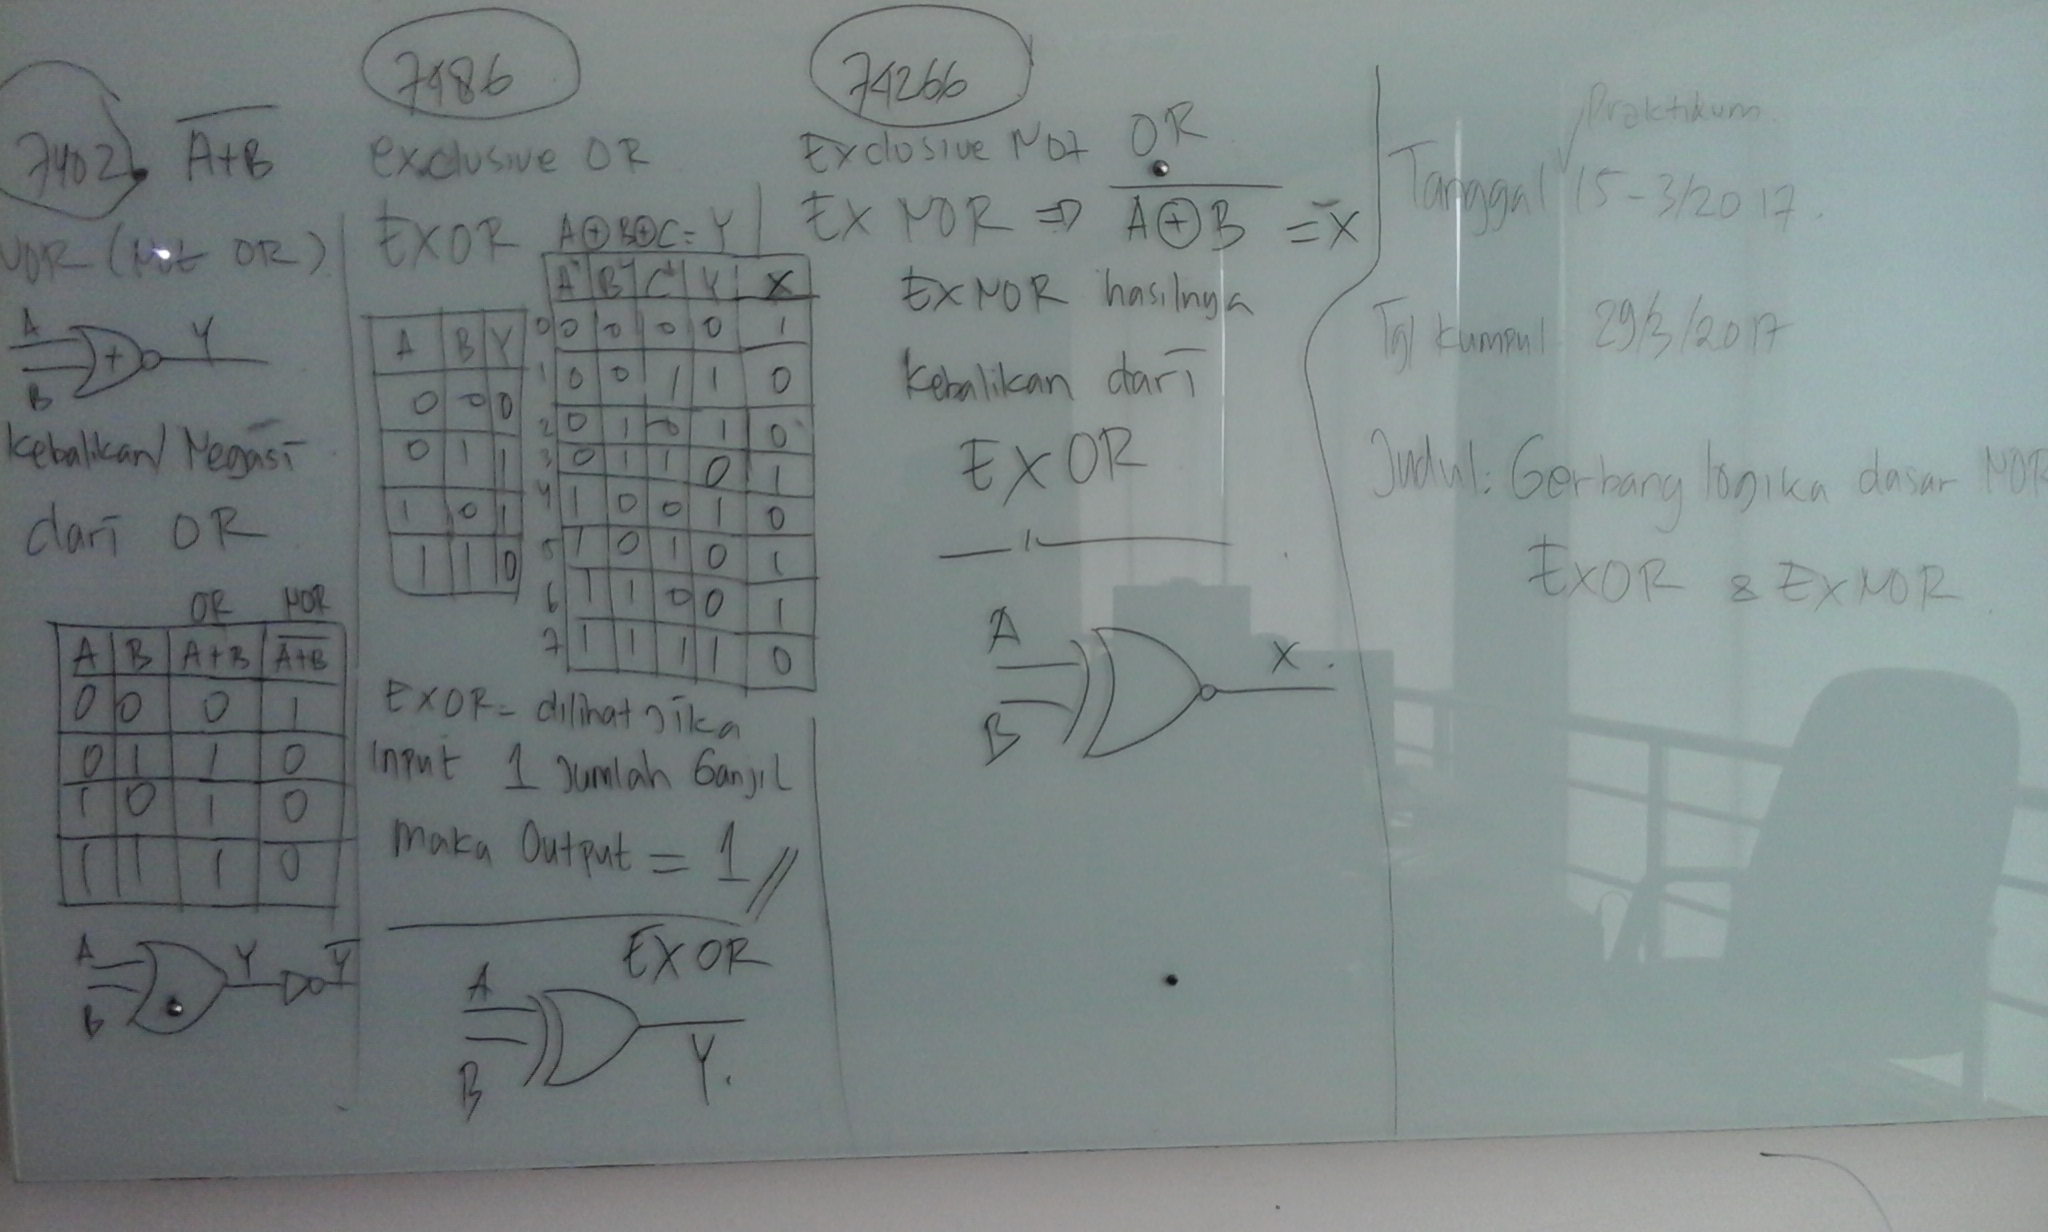 7402
A+B
NOR (Not OR)
A
Y
+
B
Kebalikan/Negasi
dari OR
OR NOR
A B A+B A+B
0 0 0 1
0 1 1 0
1 0 1 0
1 1 1 0
A
Y
Y
B
7486
exclusive OR
EXOR
A⊕B⊕C=Y
A B Y
0 0 0
0 1 1
1 0 1
1 1 0
A B C Y X
0 0 0 0 0 1
1 0 0 1 1 0
2 0 1 0 1 0
3 0 1 1 0 1
4 1 0 0 1 0
5 1 0 1 0 1
6 1 1 0 0 1
7 1 1 1 1 0
EXOR = dilihat jika
Input 1 Jumlah Ganjil
maka Output = 1 //
EXOR
A
B
Y.
74266
Exclosive Not OR
EX NOR ⇒ A⊕B = X
EXNOR hasilnya
Kebalikan dari
EXOR
A
X.
B
Praktikum
Tanggal 15-3/2017.
Tgl kumpul 29/3/2017
Judul: Gerbang logika dasar NOR
EXOR & EXNOR.